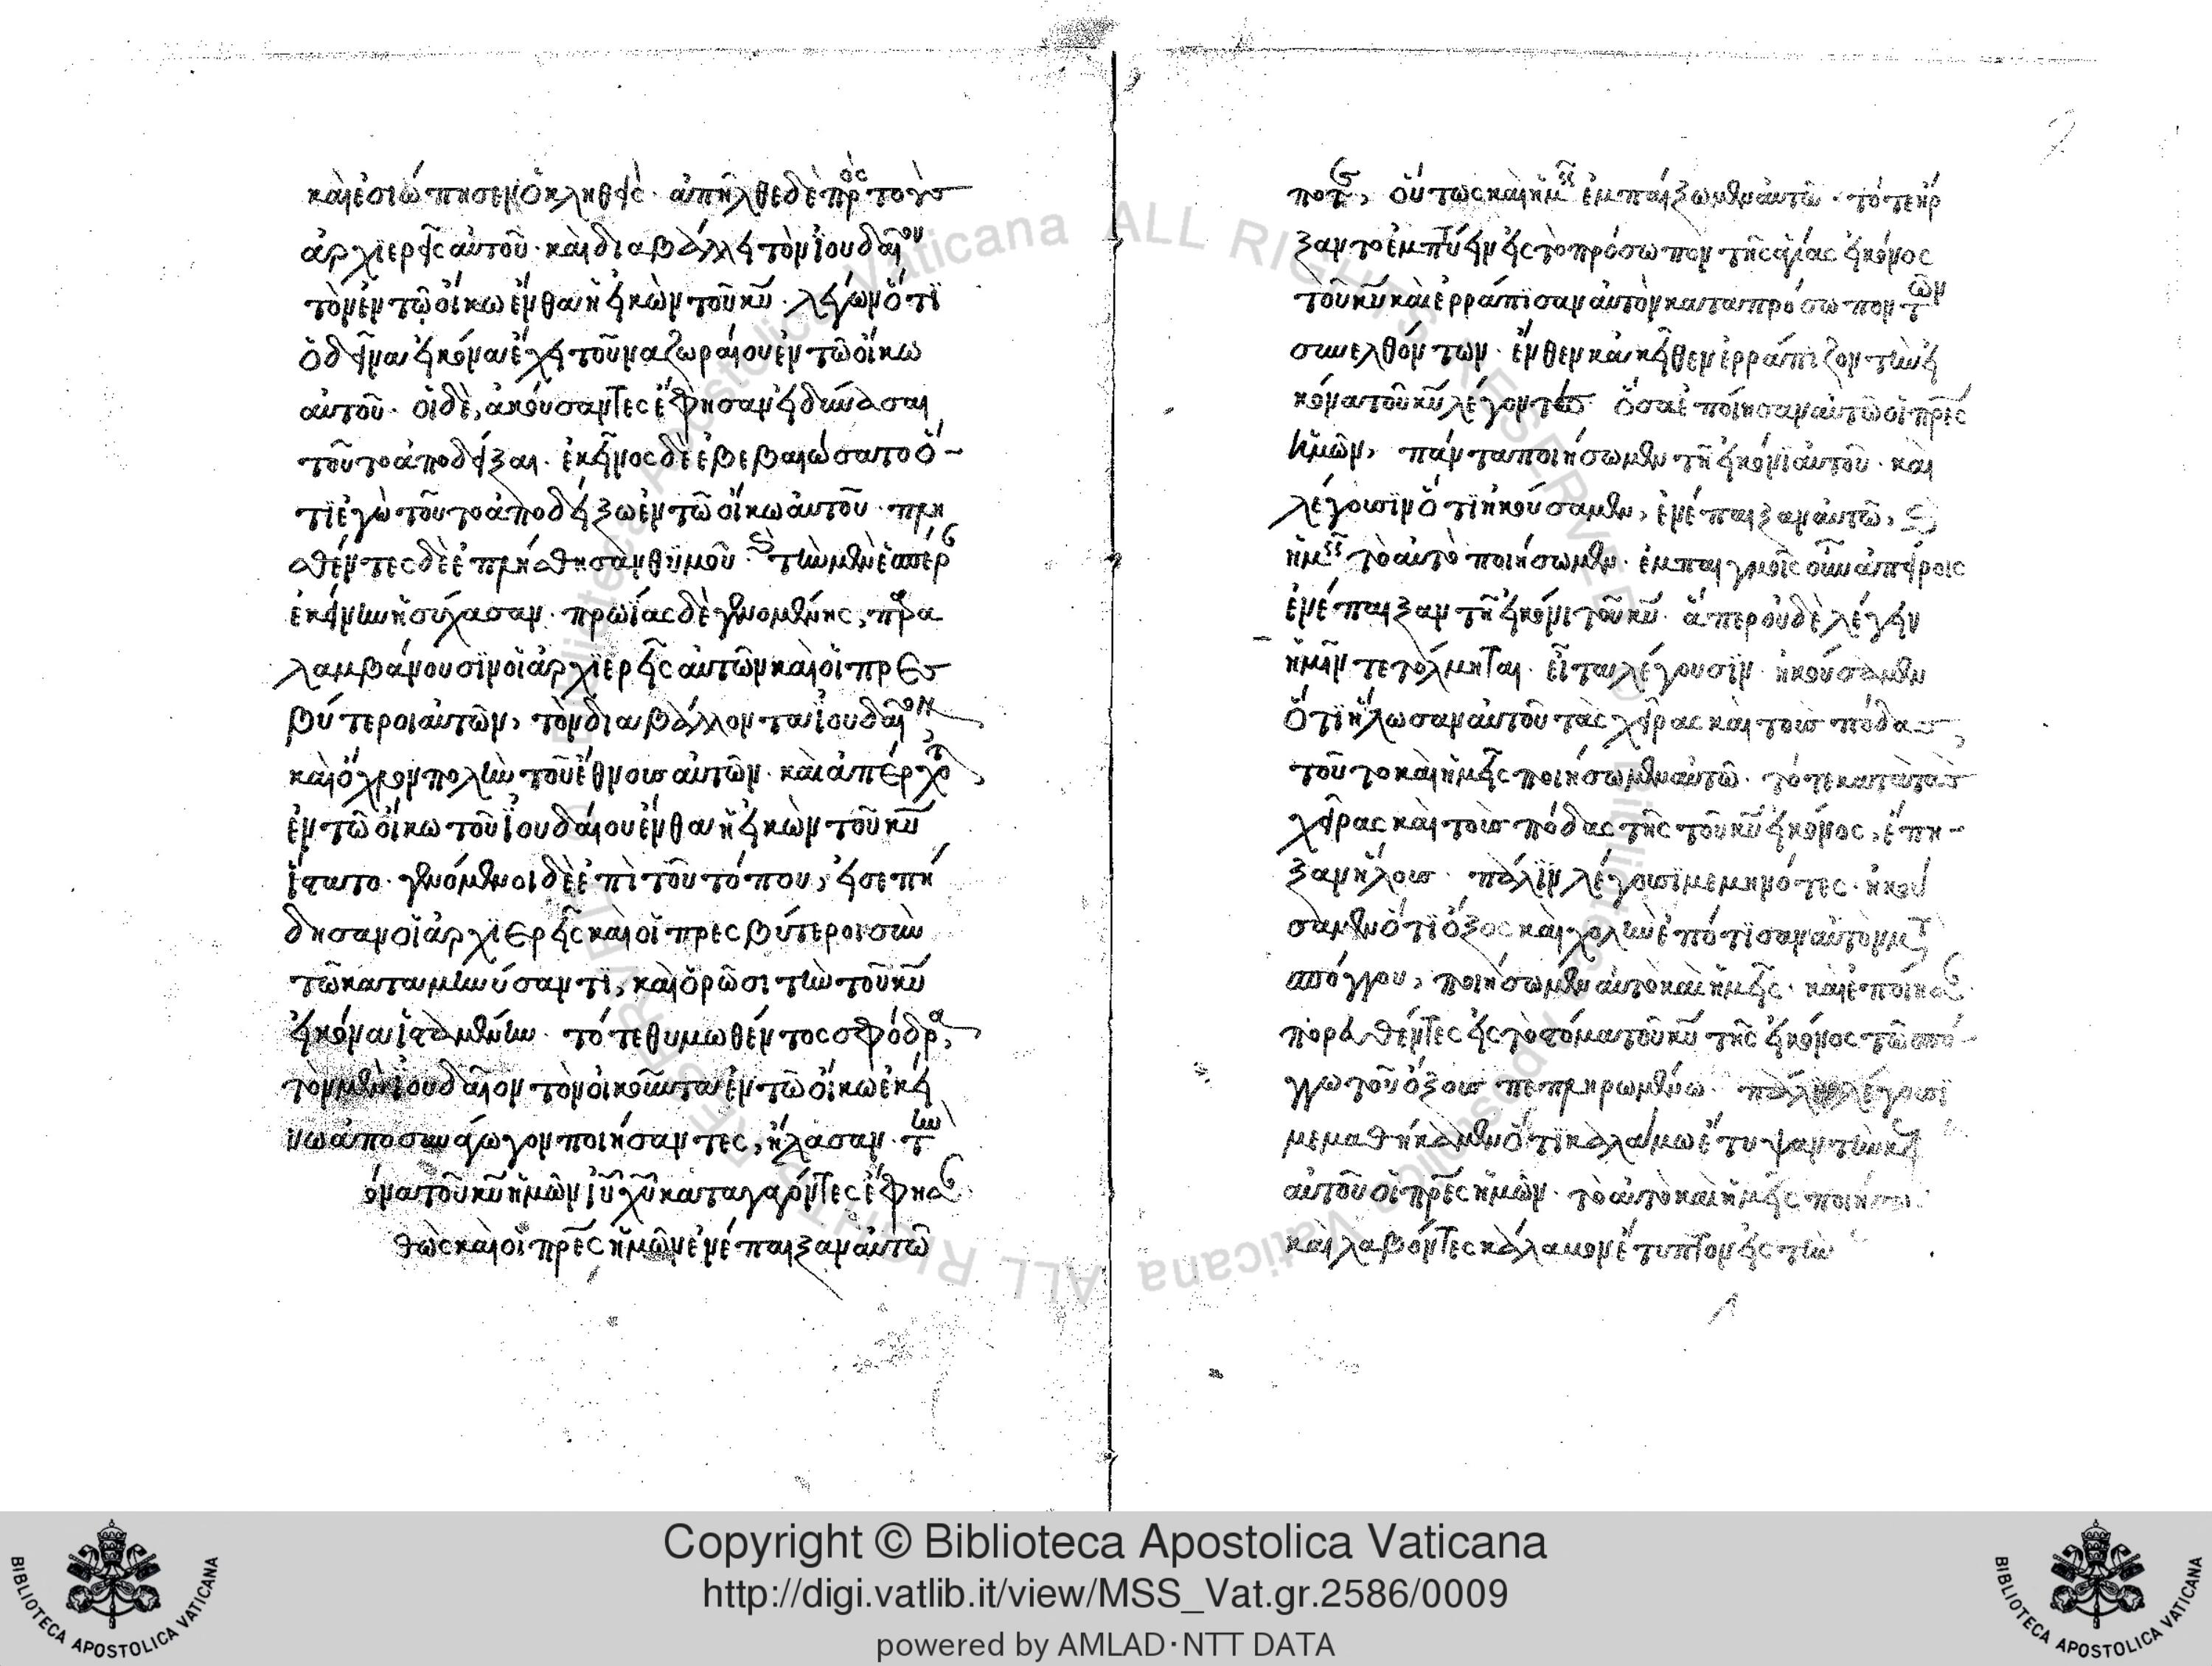 καὶ ἐσιώπησεν ὁ κληθείς· ἀπῆλθε δὲ πρὸς τοὺς
ἀρχιερεῖς αὐτοῦ· καὶ διαβάλλει τὸν ἰουδαῖον
τὸν ἐν τῷ οἴκω ἔνθα ἡ εἰκὼν τοῦ κυ· λέγων ὅτι
ὁ δεῖνα εἰκόνα ἔχει τοῦ ναζωραίου ἐν τῶ οἴκω
αὐτοῦ· οἱ δὲ, ἀκούσαντες ἔφησαν εἰ δύνασαι
τοῦτο ἀποδεῖξαι· ἐκεῖνος δὲ ἐβεβαιώσατο ὅ-
τι ἐγὼ τοῦτο ἀποδείξω ἐν τῶ οἴκω αὐτοῦ· πλη
σθέντες δὲ ἐπλήσθησαν θυμοῦ· καὶ τὴν μὲν ἑσπέρ
ἐκείνην ἡσύχασαν· πρωΐας δὲ γενομένης, παρα
λαμβάνουσιν οἱ ἀρχιερεῖς αὐτῶν καὶ οἱ πρεσ
βύτεροι αὐτῶν, τὸν διαβάλλοντα ἰουδαῖον
καὶ ὄχλον πολὺν τοῦ ἔθνους αὐτῶν· καὶ ἀπέρχο
ἐν τῶ οἴκω τοῦ ἰουδαίου ἔνθα ἡ εἰκὼν τοῦ κυ
ἵστατο· γενόμενοι δὲ ἐπὶ τοῦ τόπου, εἰσεπή
δησαν οἱ ἀρχιερεῖς καὶ οἱ πρεσβύτεροι σὺν
τῶ καταμηνύσαντι, καὶ ὁρῶσι τὴν τοῦ κυ
εἰκόνα ἱσταμένην· τότε θυμωθέντος σφόδρα,
τὸν μὲν ἰουδαῖον τὸν οἰκοῦντα ἐν τῶ οἴκω ἐκεί
νω ἀποσυνάγωγον ποιήσαντες, ἤλασαν· τὴν
όνα τοῦ κυ ἡμῶν ιυ χυ καταγαγόντες ἔφησαν
θὼς καὶ οἱ πρες ἡμῶν ἐνέπαιξαν αὐτῶ
ποτε, οὕτως καὶ ἡμεῖς ἐμπαίξωμεν αὐτῶ· τότε ἤρ
ξαντο ἐμπτύειν εἰς τὸ πρόσωπον τῆς ἁγίας εἰκόνος
τοῦ κυ καὶ ἐρράπισαν αὐτὸν κατα πρόσωπον τῶν
συνελθόντων· ἔνθεν κἀκεῖθεν ἐρράπιζον τὴν εἰ
κόνα τοῦ κυ λέγοντες ὅσα ἐποίησαν αὐτῶ οἱ πρες
ἡμῶν, πάντα ποιήσωμεν τῆ εἰκόνι αὐτοῦ· καὶ
λέγουσιν ὅτι ἠκούσαμεν, ἐνέπαιξαν αὐτῶ, καὶ
ἡμεῖς τὸ αὐτὸ ποιήσωμεν· ἐμπαιγμοῖς οὖν ἀπείροις
ἐνέπαιξαν τῆ εἰκόνι τοῦ κυ· ἅπερ οὐδὲ λέγειν
ἡμῖν τετόλμηται· εἶτα λέγουσιν· ἠκούσαμεν
ὅτι ἥλωσαν αὐτοῦ τὰς χεῖρας καὶ τοὺς πόδας,
τοῦτο καὶ ἡμεῖς ποιήσωμεν αὐτῶ· τότε κατὰ τὰς
χεῖρας καὶ τοὺς πόδας τῆς τοῦ κυ εἰκόνος, ἔπη-
ξαν ἥλους· πάλιν λέγουσι μεμηνότες· ἠκού
σαμεν ὅτι ὄξος καὶ χολὴν ἐπότισαν αὐτὸν μετ
σπόγγου, ποιήσωμεν αὐτὸ καὶ ἡμεῖς· καὶ ἐποίησαν
θέντες εἰς τὸ στόμα τοῦ κυ τῆς εἰκόνος τῶ σπό-
γγω τοῦ ὄξους πεπληρωμένω· πάλιν λέγουσι
μεμαθήκαμεν ὅτι καλάμω ἔτυψαν τὴν κε
αὐτοῦ οἱ πρες ἡμῶν· τὸ αὐτὸ καὶ ἡμεῖς
καὶ λαβόντες κάλαμον ἔτυπτον εἰς τὴν
Copyright © Biblioteca Apostolica Vaticana
http://digi.vatlib.it/view/MSS_Vat.gr.2586/0009
powered by AMLAD·NTT DATA
BIBLIOTECA APOSTOLICA VATICANA
BIBLIOTECA APOSTOLICA VATICANA